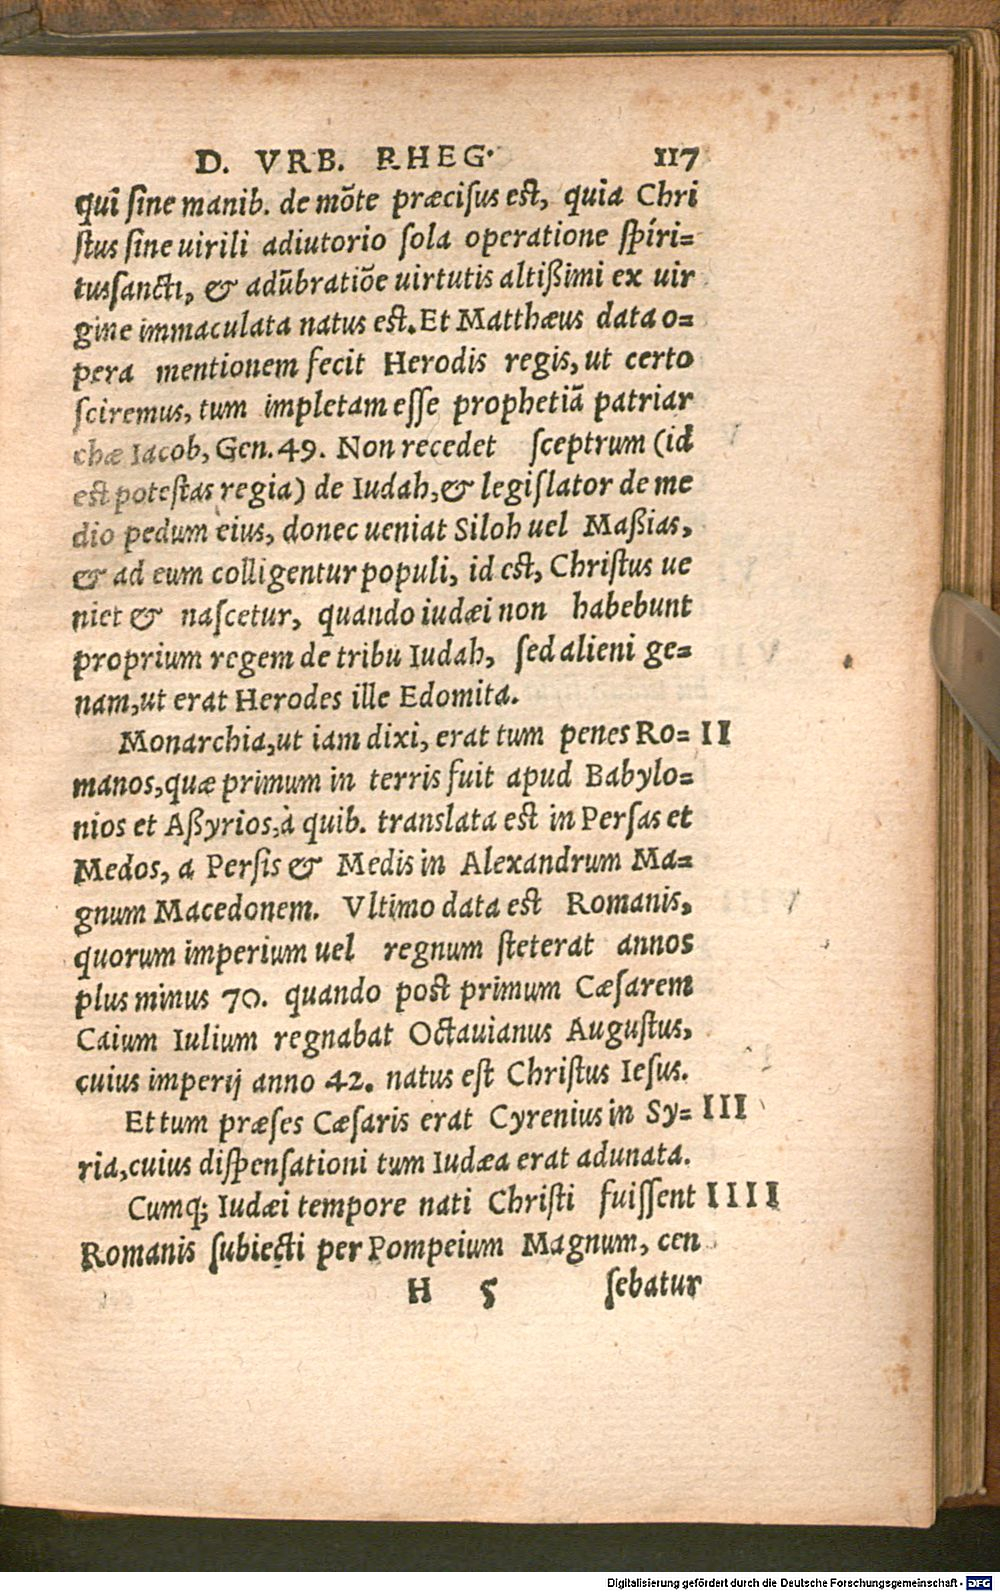 D. VRB. RHEG. 117
qui sine manib. de mõte præcisus est, quia Chri
stus sine uirili adiutorio sola operatione spiri=
tussancti, & adũbratiõe uirtutis altißimi ex uir
gine immaculata natus est. Et Matthæus data o=
pera mentionem fecit Herodis regis, ut certo
sciremus, tum impletam esse prophetiã patriar
chæ Iacob, Gen. 49. Non recedet sceptrum (id
est potestas regia) de Iudah, & legislator de me
dio pedum eius, donec ueniat Siloh uel Maßias,
& ad eum colligentur populi, id est, Christus ue
niet & nascetur, quando iudæi non habebunt
proprium regem de tribu Iudah, sed alieni ge=
nam, ut erat Herodes ille Edomita.
Monarchia, ut iam dixi, erat tum penes Ro= II
manos, quæ primum in terris fuit apud Babylo=
nios et Aßyrios, à quib. translata est in Persas et
Medos, a Persis & Medis in Alexandrum Ma=
gnum Macedonem. Vltimo data est Romanis,
quorum imperium uel regnum steterat annos
plus minus 70. quando post primum Cæsarem
Caium Iulium regnabat Octauianus Augustus,
cuius imperij anno 42. natus est Christus Iesus.
Et tum præses Cæsaris erat Cyrenius in Sy= III
ria, cuius dispensationi tum Iudæa erat adunata.
Cumq; Iudæi tempore nati Christi fuissent IIII
Romanis subiecti per Pompeium Magnum, cen
H 5 sebatur
Digitalisierung gefördert durch die Deutsche Forschungsgemeinschaft - DFG